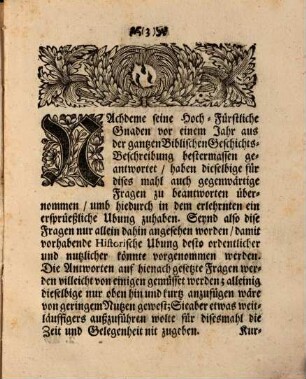 3
NAchdeme seine Hoch-Fürstliche
Gnaden vor einem Jahr aus
der gantzen Biblischen Geschichts-
Beschreibung bestermassen ge-
antwortet / haben dieselbige für
dises mahl auch gegenwärtige
Fragen zu beantworten über-
nommen / umb hiedurch in dem erlehrnten ein
ersprüeßliche Ubung zuhaben. Seynd also dise
Fragen nur allein dahin angesehen worden / damit
vorhabende Historische Ubung desto ordentlicher
und nutzlicher könnte vorgenommen werden.
Die Antworten auf hienach gesetzte Fragen wer-
den villeicht von einigen gewüsset werden; alleinig
dieselbige nur oben hin und kurtz anzufügen wäre
von geringem Nutzen gewest; Sie aber etwas weit-
läuffigers außzuführen wolte für disesmahl die
Zeit und Gelegenheit nit zugeben.
Kur-